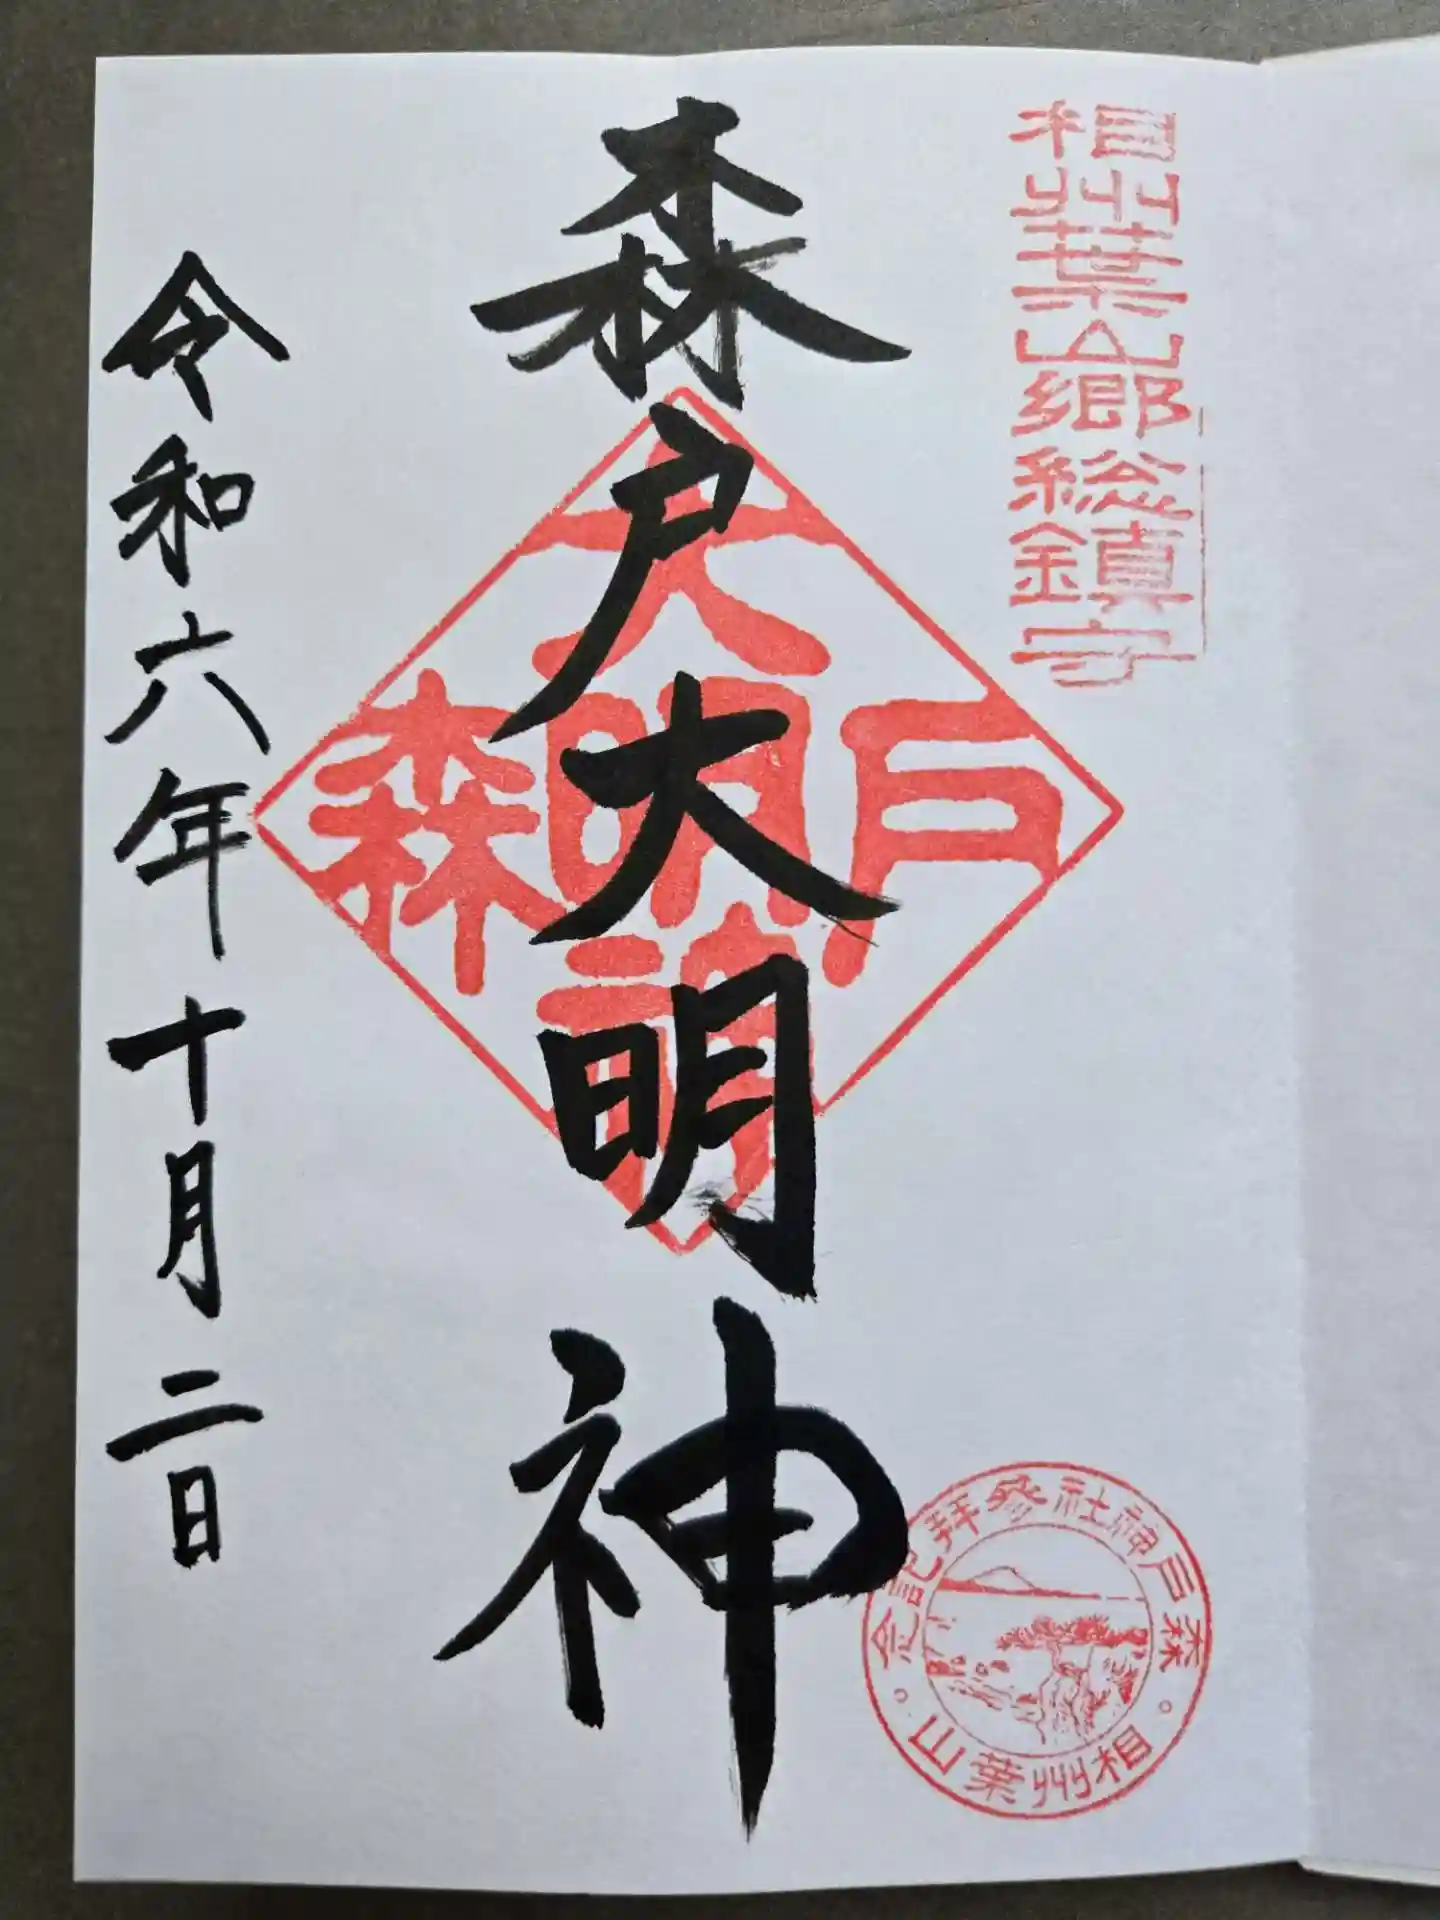 相州葉山郷総鎮守
森戸大明神
大明神
森戸
令和六年十月二日
森戸神社参拝記念
相州葉山